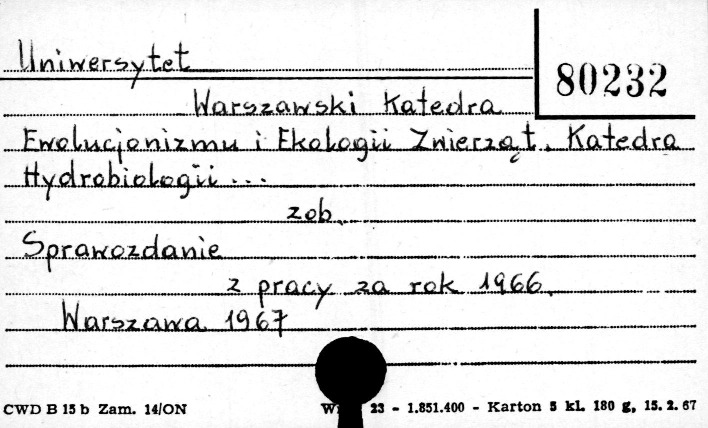 Uniwersytet
80232
Warszawski Katedra
Ewolucjonizmu i Ekologii Zwierząt. Katedra
Hydrobiologii...
zob.
Sprawozdanie
z pracy za rok 1966.
Warszawa 1967
CWD B 15 b Zam. 14/ON 23 - 1.851.400 - Karton 5 kl. 180 g, 15. 2. 67